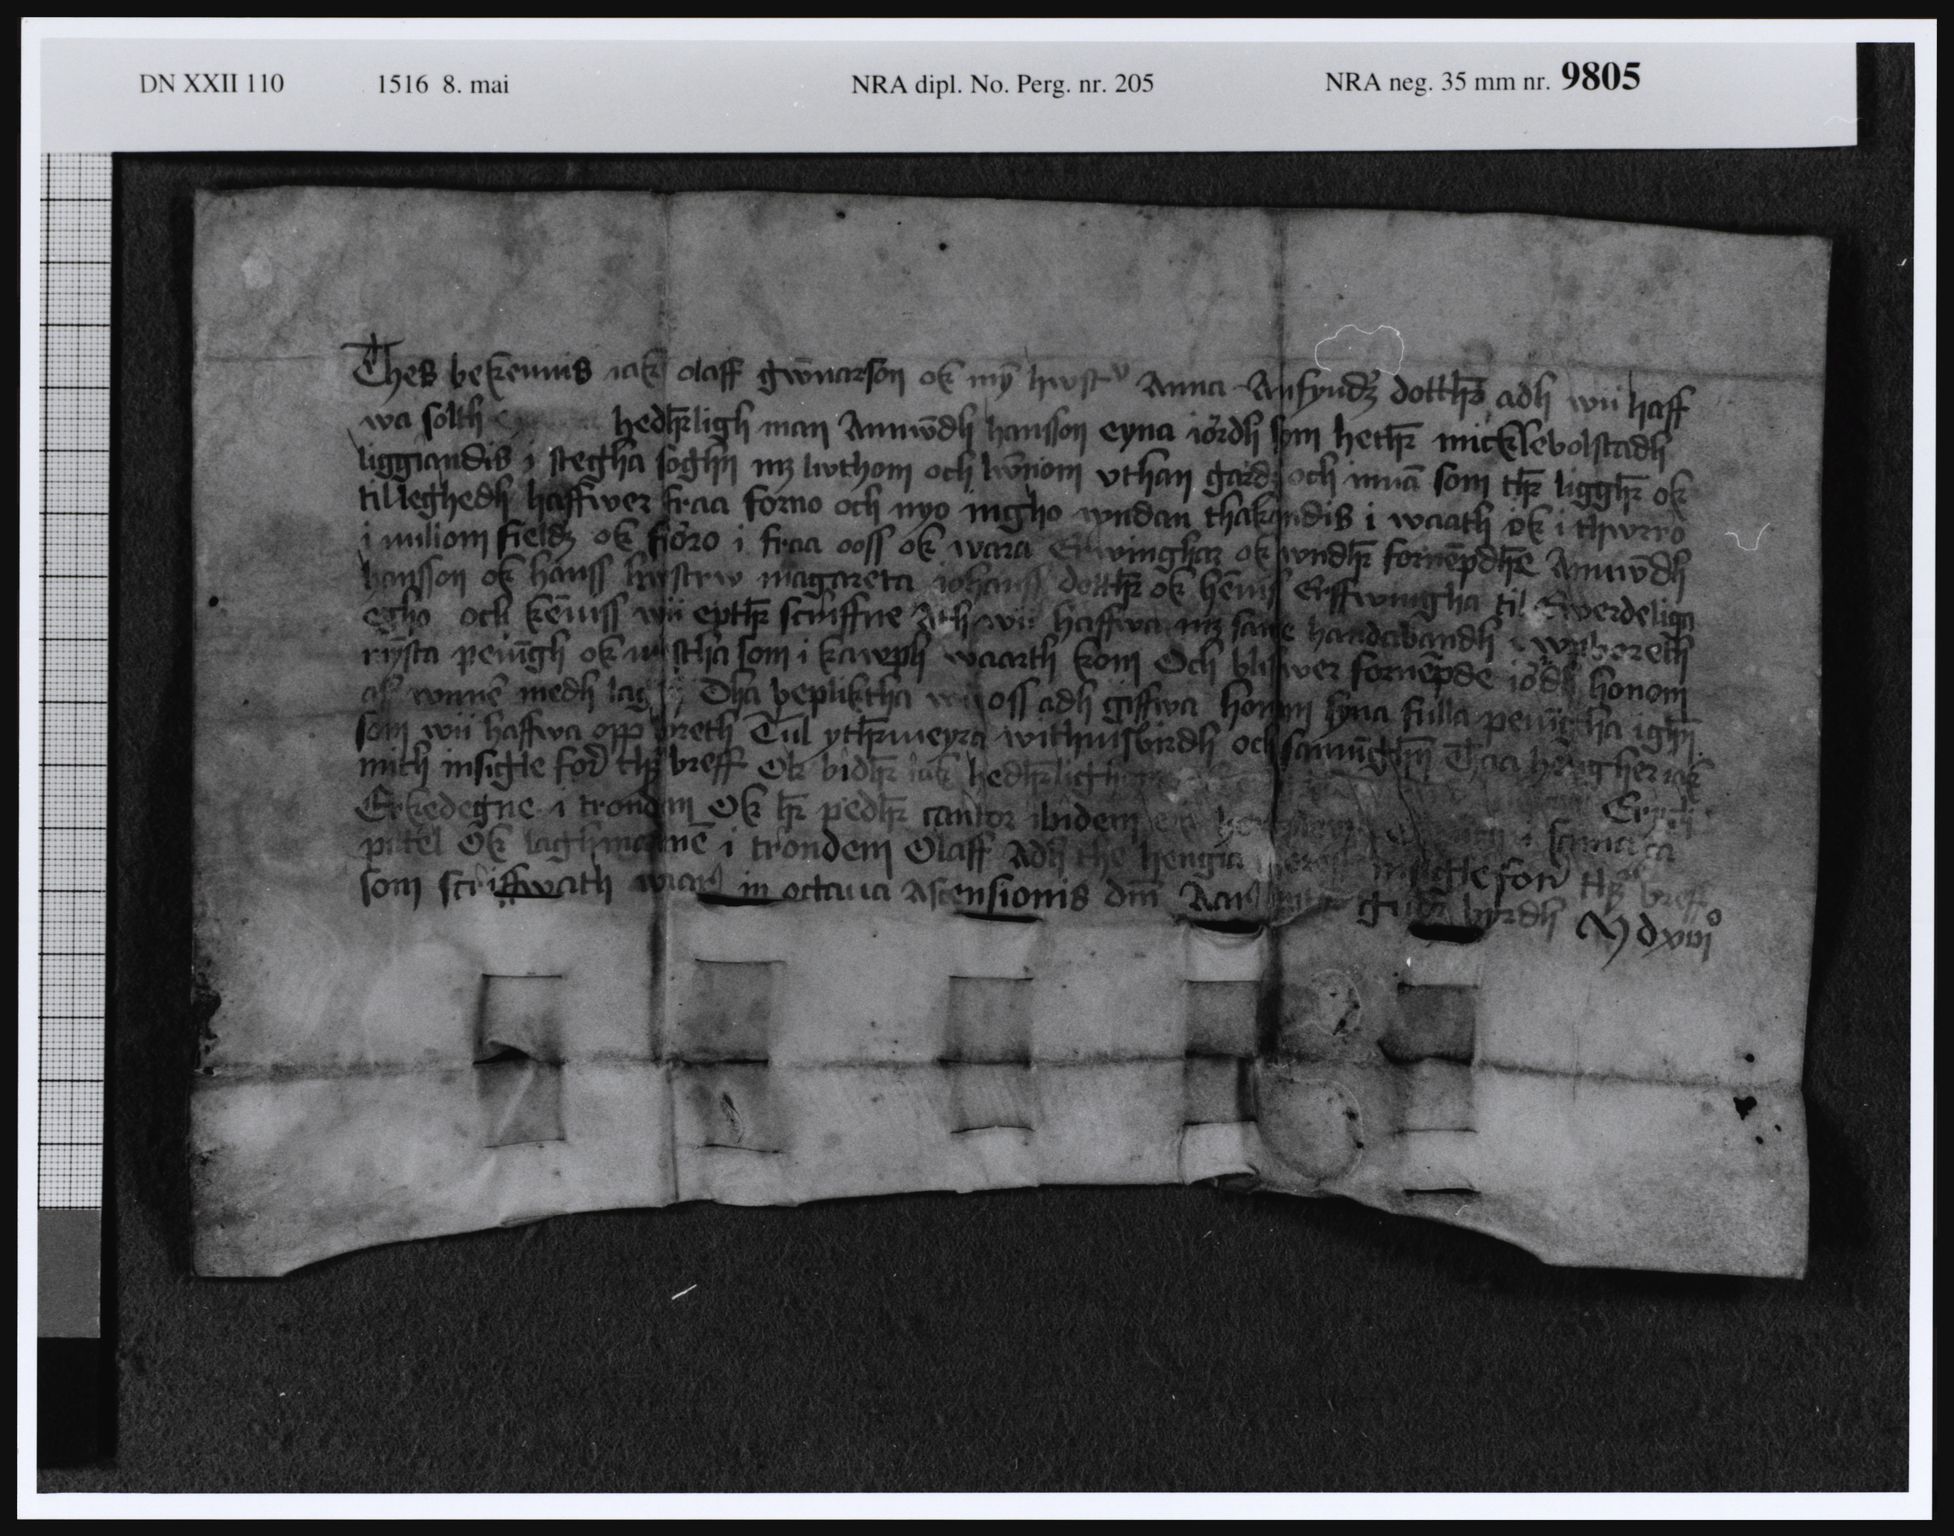 DN XXII 110 1516 8. mai NRA dipl. No. Perg. nr. 205 NRA neg. 35 mm nr. 9805
Thes bekennis iak olaff gwnarson ok my hwstv Anna Anfyndz dotther adh wii haff
wa solth hedherligh man Amwndh hansson eyna iördh som hether micklebolstadh
liggiandis i stegha soghn mz lwthom och lwniom vthan gardz och innan som ther ligger ok
tilleghedh haffwer fraa forno och nyo ingho wndan thakandis i waath ok i thwrro
i nuliom fieldz ok fiöro i fraa ooss ok wara Erwinghar ok wndher fornempdhe Amwndh
hansson ok hanss hwstrw magareta iohanss dotther ok hennis Erffwingha til Ewerdeliga
egho och kenniss wii epther scriffne Ath wii haffwa mz sane handabandh wpboreth
rysta penningh ok som i kawph waarth kom Och bliffwer fornempde iördh honom
aff wnnen medh Dha bepliktha wii oss adh giffwa honom syna fulla penningha ighen
som wii haffwa opp breth Tiil ythermeyra withnisbirdh och Tha hengher iak
mith insigle for thz breff Ok bidher iak hedherligh
Erkedegne i trondem Ok her pedher cantor ibidem
pitel Ok laghmannen i trondem Olaff Adh the hengia insigle for thz breff
som scriffwath waar in octaua Ascensionis domini Aar gudz byrdh Mdxvi